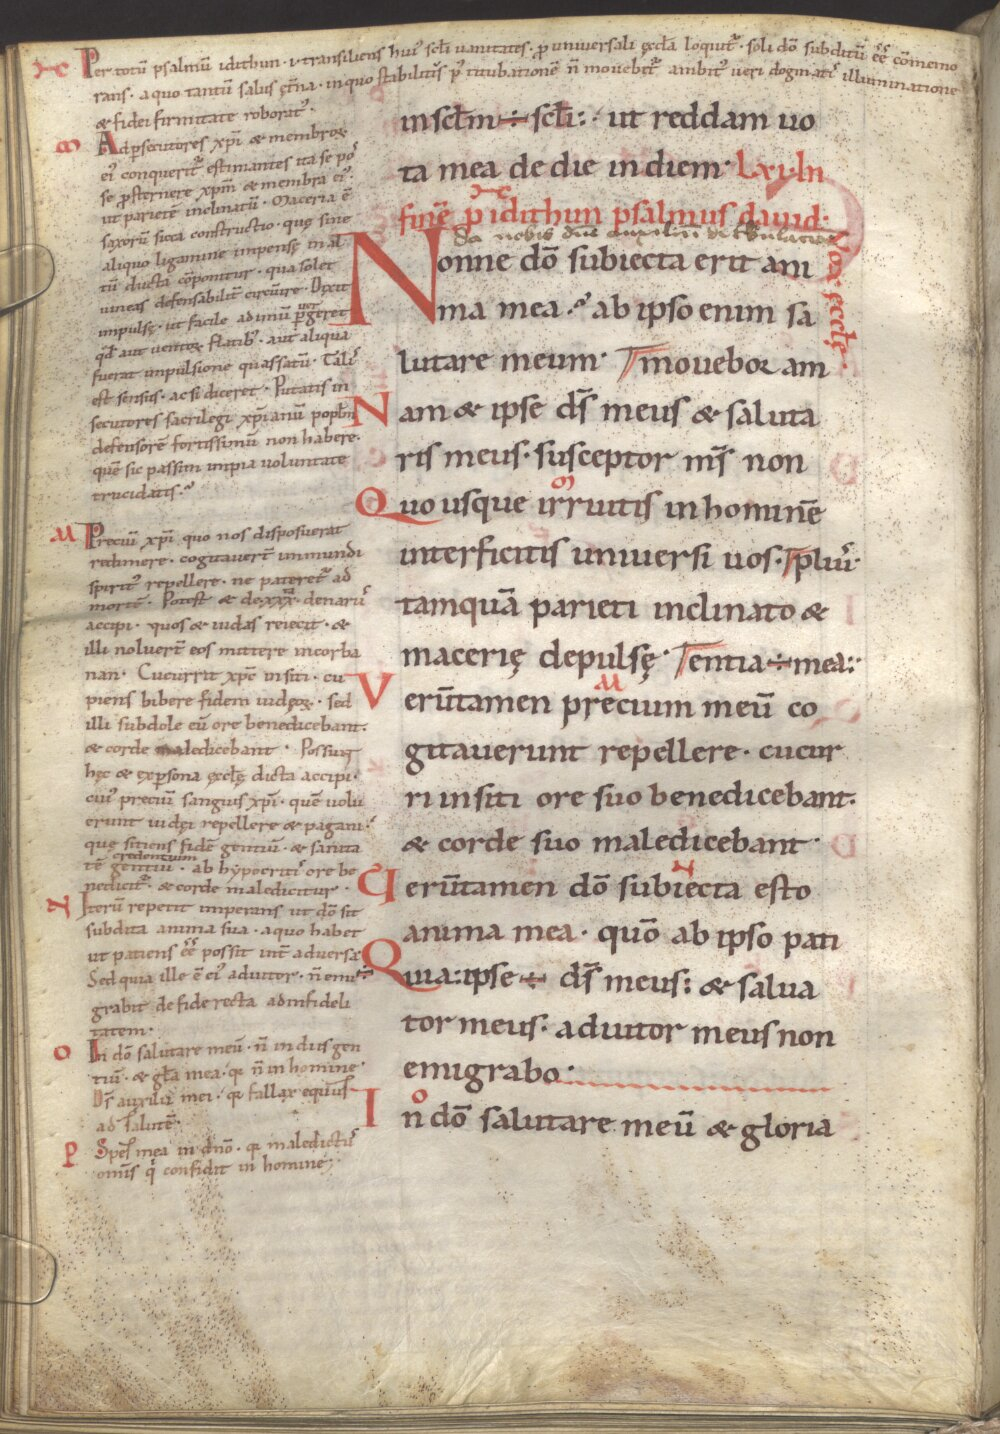 Per totū psalmū idithun · i· transiliens hui᷒ scłi uanitates · ꝓ universali ęcclā loquit᷑ · soli dō subditū eē cōmemo
rans · a quo tantū salus ęt̄na · in quo stabilitus p̄ titubationē n̄ movebit᷑ ambit᷒ ueri dogmatis illuminatione
& fidei firmitate roborat᷒ ·
Ad ꝑsecutores xp̄i & membroꝝ
ei᷒ conquerit᷑ estimantes ita se pos
se ꝓsternere xp̄m & membra ei᷒
ut parietē inclinatū · Maceria ē
saxorū sicca constructio · quę sine
aliquo ligamine impensę in al
tū ducta cōponitur · qua solet
uineas defensabilit̄ circuire · Dixit
impulsę · ut facile ad imū ꝑvergeret
qd̄ aut ventoꝝ flatib᷒ · aut aliqua
fuerat impulsione quassatū · Talis
est sensus · ac si diceret · Putatis in
secutores sacrilegi xp̄ianū popłm
defensorē fortissimū non habere
quē sic passim impia uoluntate
trucidatis ·
Preciū xp̄i quo nos disposuerat
redimere · cogitauer̄t inmundi
spirit᷒ repellere · ne pateret᷑ ad
mortē · Potest & de xxx denariis
accipi · quos & iudas reiecit · &
illi noluer̄t eos mittere in corba
nan · Cucurrit xp̄c in siti · cu
piens bibere fidem iudęoꝝ · sed
illi subdole eū ore benedicebant ·
& corde maledicebant · Possunt
hęc & ex ꝑsona ęcclę dicta accipi ·
cui᷒ preciū sanguis xp̄i · quē uolu
erunt iudęi repellere & pagani ·
quę sitiens fidē gentiū · & sanita
credentium
tē gentiū · ab hypocritis ore be
nedicit᷑ · & corde maledicitur ·
Iterū repetit imperans ut dō sit
subdita anima sua · a quo habet
ut patiens eē possit int̄ aduersa
Sed quia ille ē ei᷒ adiutor · n̄ emi
grabit de fide recta ad infideli
tatem ·
In dō salutare meū · n̄ in diis gen
tiū · & głā mea · qr̄ n̄ in homine
Ds̄ auxilii mei · qr̄ fallax equus
ad salutē ·
Spes mea in dn̄o · qr̄ maledict᷒
omnis q̄ confidit in homine ·
in scłm ÷ scłi: · ut reddam uo
ta mea de die in diem · LXI · In
finē p̄ idithun psalmus dauid:
Da nobis dn̄e auxiliū de tribulatione
Vox ęcclę ·
Nonne dō subiecta erit ani
ma mea · ab ipso enim sa
lutare meum · movebor am
Nam & ipse ds̄ meus & saluta
ris meus · susceptor ms̄ non
Quo usque irruitis in hominē
interficitis universi uos · plius
tamquā parieti inclinato &
macerię depulsę · tentia ÷ mea:·
Verūtamen precium meū co
gitauerunt repellere · cucur
ri in siti ore suo benedicebant ·
& corde suo maledicebant ·
Verūtamen dō subiecta esto
anima mea · quō ab ipso pati
Quia: ipse ÷ ds̄ meus: & salua
tor meus · adiutor meus non
emigrabo ·
In dō salutare meū & gloria